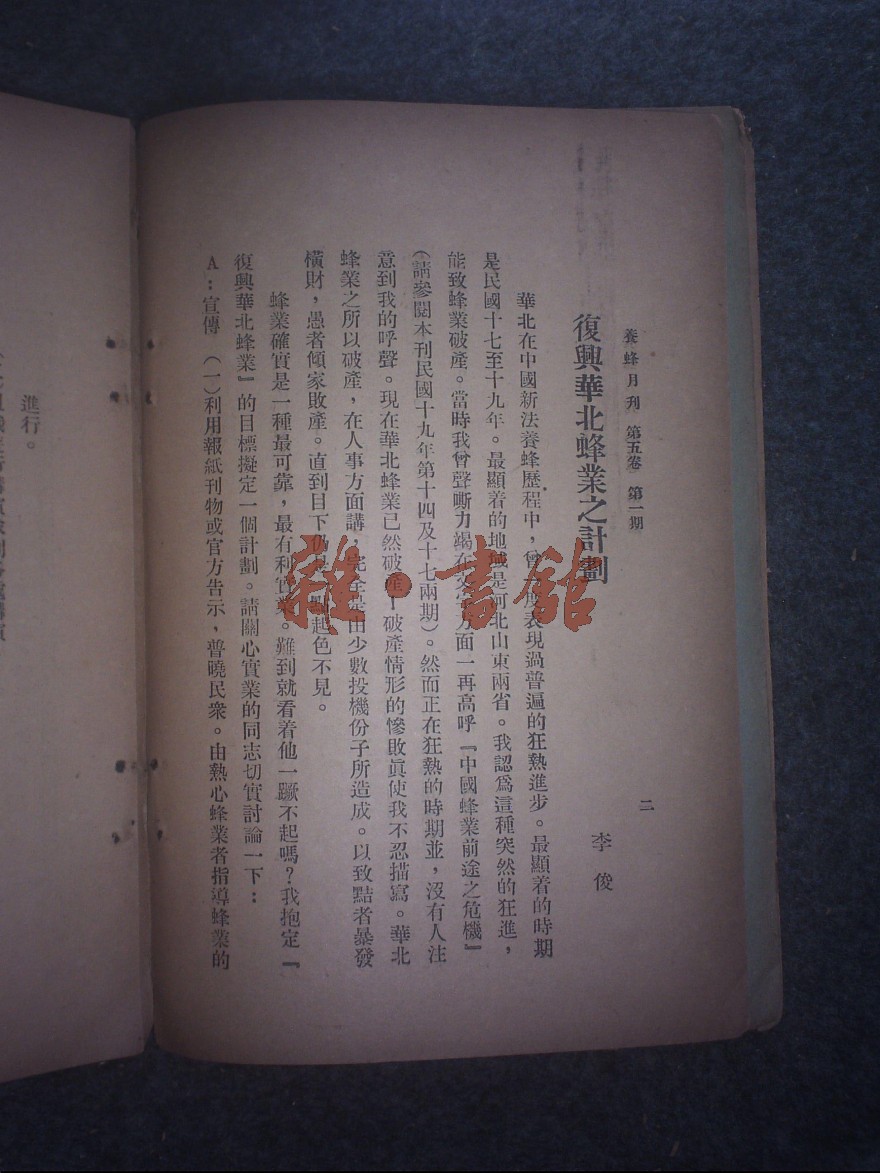 養蜂月刊 第五卷 第一期
二
復興華北蜂業之計劃
李俊
華北在中國新法養蜂歷程中，曾度表現過普遍的狂熱進步。最顯着的時期
是民國十七至十九年。最顯着的地域是河北山東兩省。我認爲這種突然的狂進，
能致蜂業破產。當時我曾聲嘶力竭在方面一再高呼『中國蜂業前途之危機』
（請參閱本刊民國十九年第十四及十七兩期）。然而正在狂熱的時期並，沒有人注
意到我的呼聲。現在華北蜂業已然破產－破產情形的慘敗眞使我不忍描寫。華北
蜂業之所以破產，在人事方面講，完全是由少數投機份子所造成。以致黠者暴發
橫財，愚者傾家敗產。直到目下仍起色不見。
蜂業確實是一種最可靠，最有利實業。難到就看着他一蹶不起嗎？我抱定『
復興華北蜂業』的目標擬定一個計劃。請關心實業的同志切實討論一下：
A：宣傳 （一）利用報紙刊物或官方告示，普曉民衆。由熱心蜂業者指導蜂業的
進行。
雜·書館